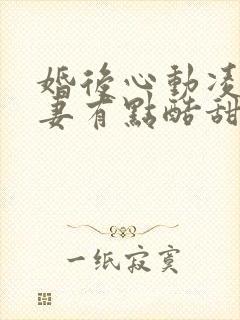 婚後心動凌
妻有點酷甜
一纸寂寞